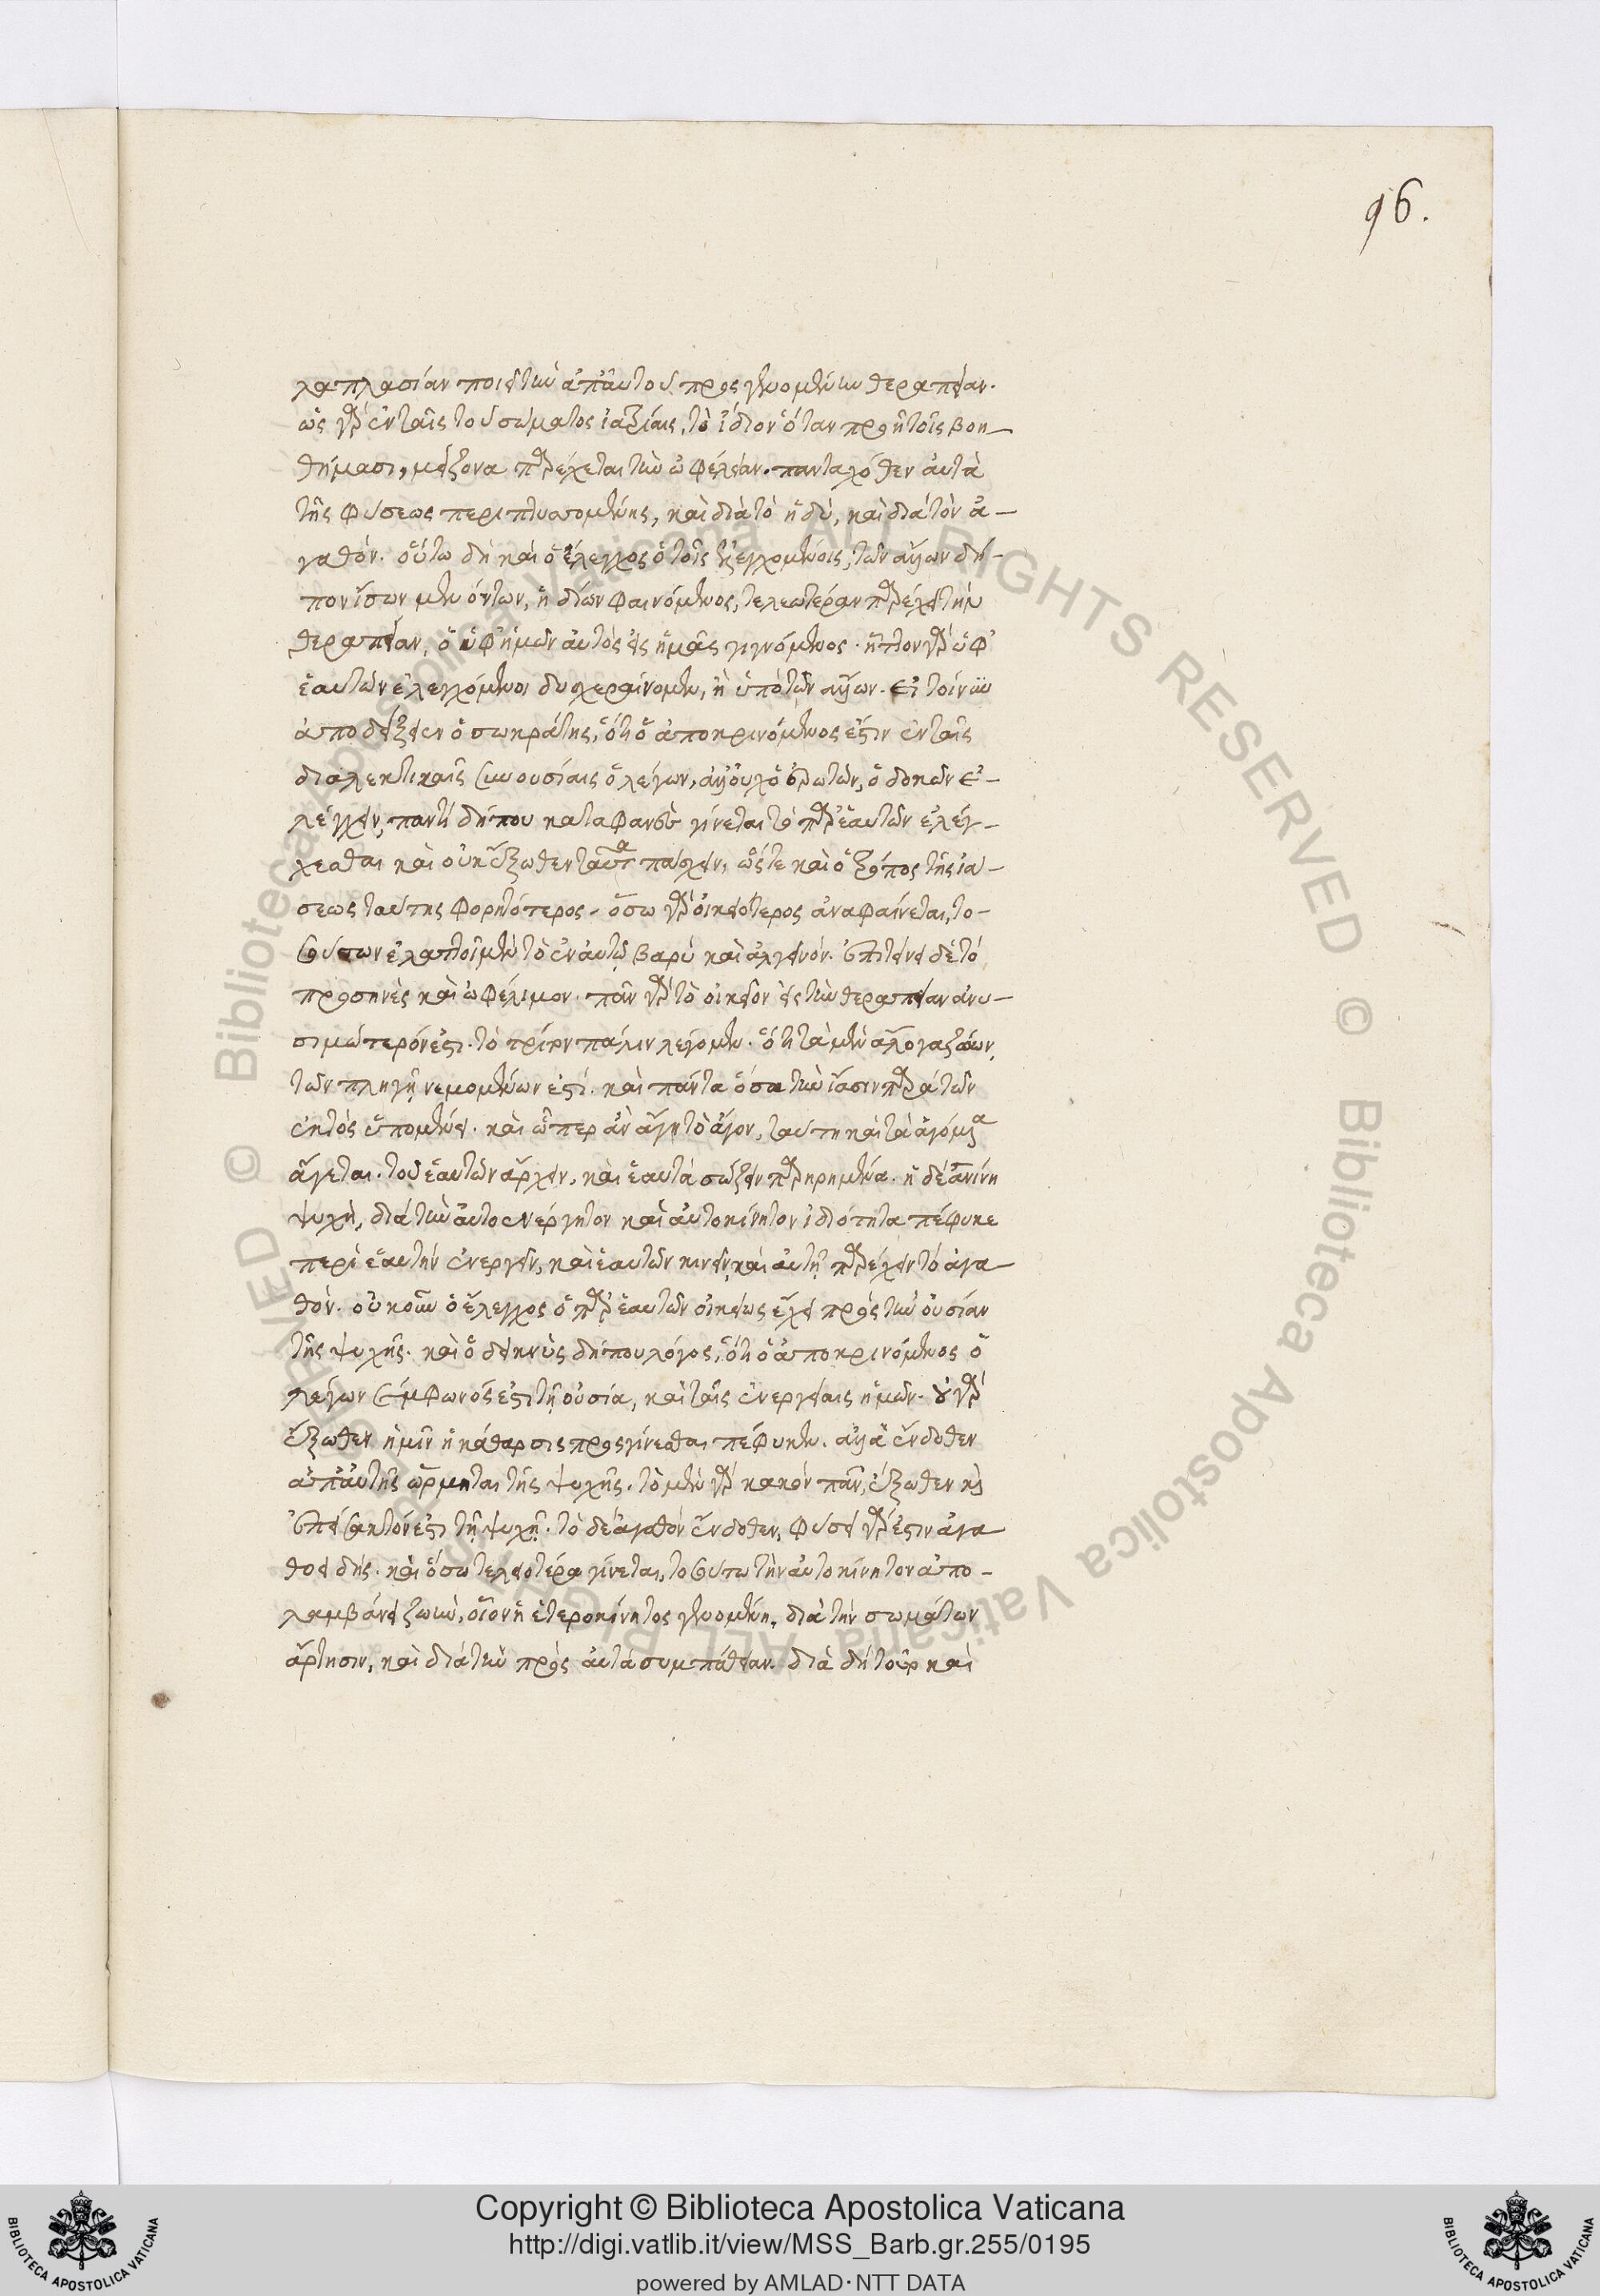 96.
λαπλασίαν ποιεῖ τὴν ἀπ' αὐτοῦ προσγινομένην θεραπείαν.
ὡς γὰρ ἐν ταῖς τοῦ σώματος ἰατρίαις, τὸ ἴδιον ὅταν προσῇ τοῖς βοη-
θήμασι, μείζονα παρέχεται τὴν ὠφέλειαν. πανταχόθεν αὐτὰ
τῆς φύσεως περιπτυσσομένης, καὶ διὰ τὸ ἡδὺ, καὶ διὰ τὸν ἀ-
γαθόν. οὕτω δὴ καὶ ὁ ἔλεγχος ὁ τοῖς ἐλεγχομένοις, τῶν ἄλλων δή-
που ἴσων μὲν ὄντων, ἢ δι' ὧν φαινόμενος, τελεωτέραν παρέχει τὴν
θεραπείαν, ὁ ὑφ' ἡμῶν αὐτὸς εἰς ἡμᾶς γιγνόμενος. ἧττον γὰρ ὑφ'
ἑαυτῶν ἐλεγχόμενοι δυσχεραίνομεν, ἢ ὑπὸ τῶν ἄλλων. εἰ τοίνυν
ἀποδείξειεν ὁ σωκράτης, ὅτι ὁ ἀποκρινόμενος ἐστὶν ἐν ταῖς
διαλεκτικαῖς συνουσίαις ὁ λέγων, ἀλλ' οὐχ ὁ ἐρωτῶν, ὁ δοκῶν ἐ-
λέγχειν, παντὶ δήπου καταφανὲς γίνεται τὸ παρ' ἑαυτῶν ἐλέγ-
χεσθαι καὶ οὐκ ἔξωθεν ταῦτα πάσχειν, ὥστε καὶ ὁ τρόπος τῆς ἰά-
σεως ταύτης φορητότερος. ὅσω γὰρ οἰκειότερος ἀναφαίνεται, το-
σούτων ἐλαττοῖ μὲν τὸ ἐν αὐτῷ βαρὺ καὶ ἀλγεινόν. ἐπιτείνει δὲ τὸ
προσηνὲς καὶ ὠφέλιμον. πᾶν γὰρ τὸ οἰκεῖον εἰς τὴν θεραπείαν ἀνυ-
σιμώτερόν ἐστι. τὸ τρίτον πάλιν λέγομεν. ὅτι τὰ μὲν ἄλογα ζώων,
τῶν πληγῇ νεμομένων ἐστί. καὶ πάντα ὅσα τὴν ἴασιν παρὰ τῶν
ἐκτὸς ὑπομένει. καὶ ὥπερ ἂν ἄγη τὸ ἄγον, ταύτη καὶ τὰ ἀγόμενα
ἄγεται. τοῦ ἑαυτῶν ἄρχειν, καὶ ἑαυτὰ σώζειν παρῃρημένα. ἡ δὲ ἀνίνη
ψυχὴ, διὰ τὴν αὐτοενέργητον καὶ αὐτοκίνητον ἰδιότητα πέφυκε
περὶ ἑαυτὴν ἐνεργεῖν, καὶ ἑαυτῶν κινεῖν, καὶ αὐτῇ παρέχειν τὸ ἀγα-
θόν. οὐκοῦν ὁ ἔλεγχος ὁ παρ' ἑαυτῶν οἰκείως ἔχει πρὸς τὴν οὐσίαν
τῆς ψυχῆς. καὶ ὁ δεικνὺς δήπου λόγος, ὅτι ὁ ἀποκρινόμενος ὁ
λέγων σύμφωνός ἐστι τῇ οὐσία, καὶ ταῖς ἐνεργείαις ἡμῶν. οὐ γὰρ
ἔξωθεν ἡμῖν ἡ κάθαρσις προσγίνεσθαι πέφυκεν. ἀλλὰ ἔνδοθεν
ἀπ' αὐτῆς ὥρμηται τῆς ψυχῆς. τὸ μὲν γὰρ κακὸν πᾶν, ἔξωθεν καὶ
ἐπείσακτόν ἐστι τῇ ψυχῇ. τὸ δὲ ἀγαθὸν ἔνδοθεν, φύσει γὰρ ἐστιν ἀγα
θοειδής. καὶ ὅσω τελειοτέρα γίνεται, τοσούτω τὴν αὐτοκίνητον ἀπο-
λαμβάνει ζωὴν, οἷον ἡ ἑτεροκίνητος γινομένη, διὰ τὴν σωμάτων
ἄρτησιν, καὶ διὰ τὴν πρὸς αὐτὰ συμπάθειαν. διὰ δὴ τοῦτο καὶ
Copyright © Biblioteca Apostolica Vaticana
http://digi.vatlib.it/view/MSS_Barb.gr.255/0195
powered by AMLAD·NTT DATA